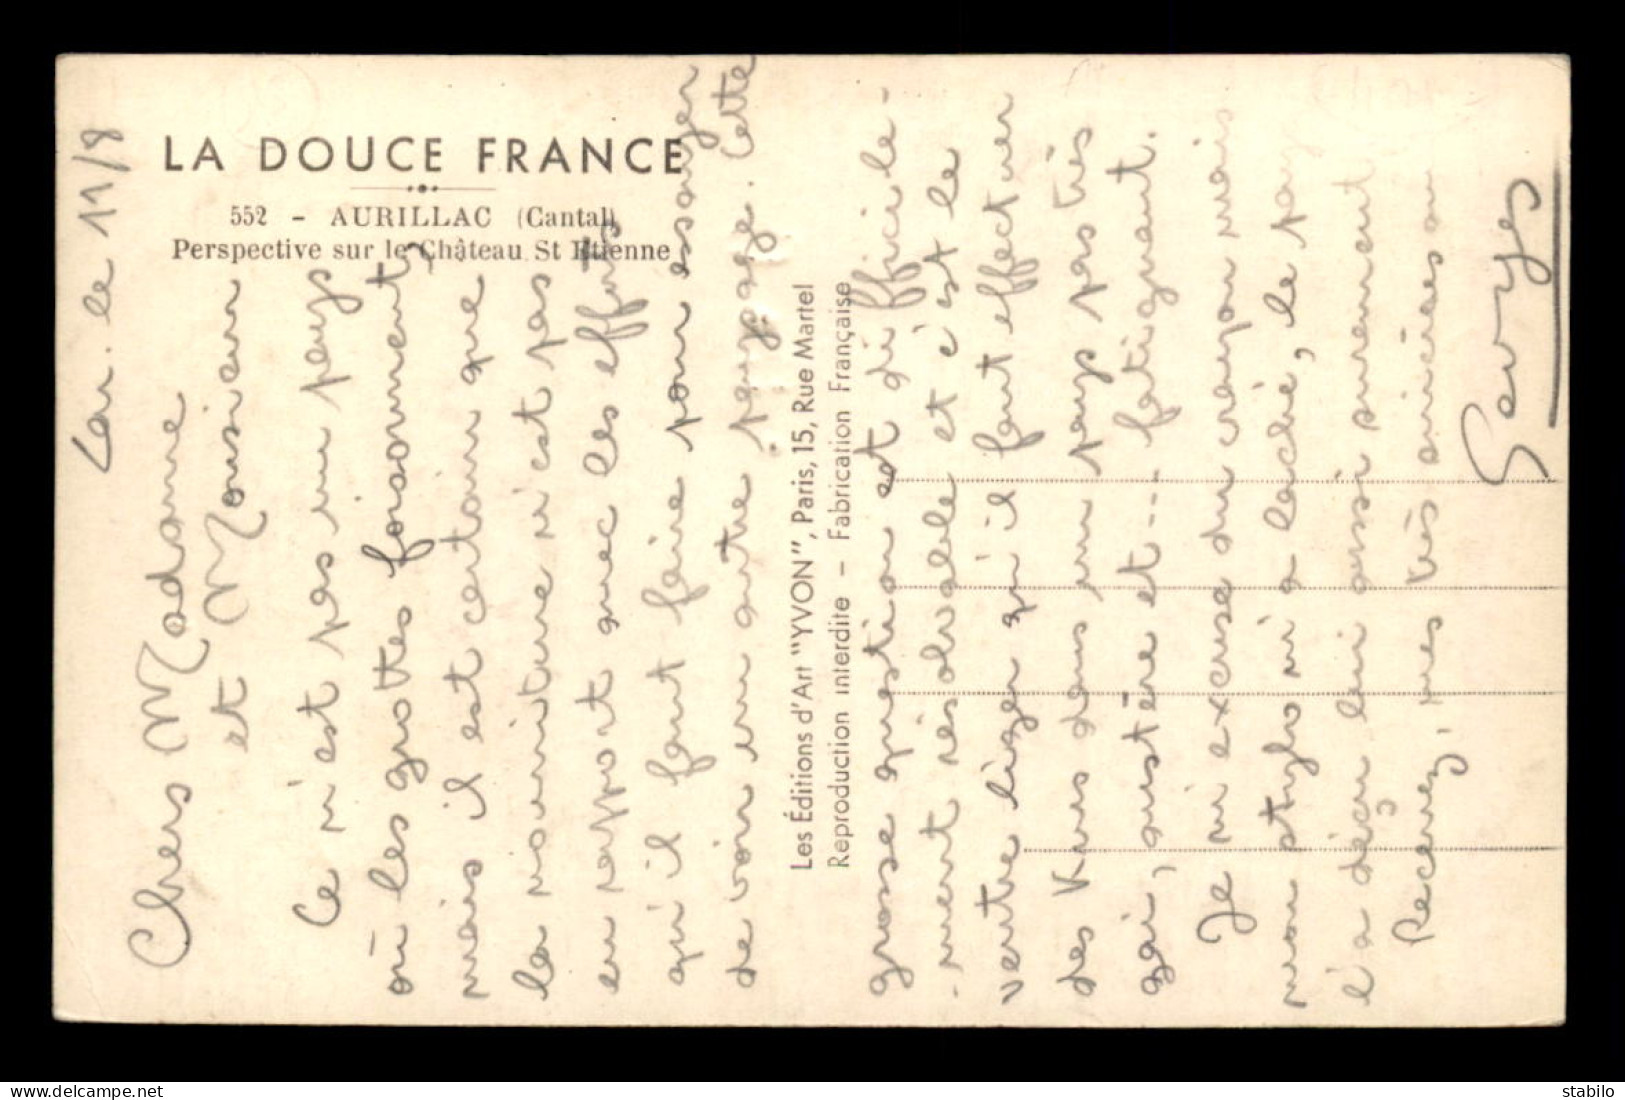 LA DOUCE FRANCE
552 - AURILLAC (Cantal)
Perspective sur le Château St Etienne
Les Éditions d'Art "YVON", Paris, 15, Rue Martel
Reproduction interdite - Fabrication Française
le 11/8
Chers Madame
et Monsieur
Ce n'est pas un pays
où les grottes foisonnent,
mais il est certain que
la nourriture n'est pas
en rapport avec les efforts
qu'il faut faire pour essayer
de voir un autre paysage. Cette
grosse question est difficile-
-ment résolvable et c'est le
ventre léger qu'il faut effectuer
des Kms dans un pays pas très
gai, austère et... fatiguant.
Je m'excuse du crayon mais
mon stylo m'a laché, le pays
l'a déçu lui aussi surement
Recevez, mes très
Delcampe.net
stabilo